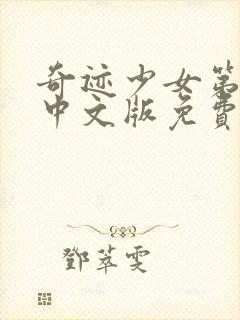 奇迹少女第
中文版免费
邓萃雯